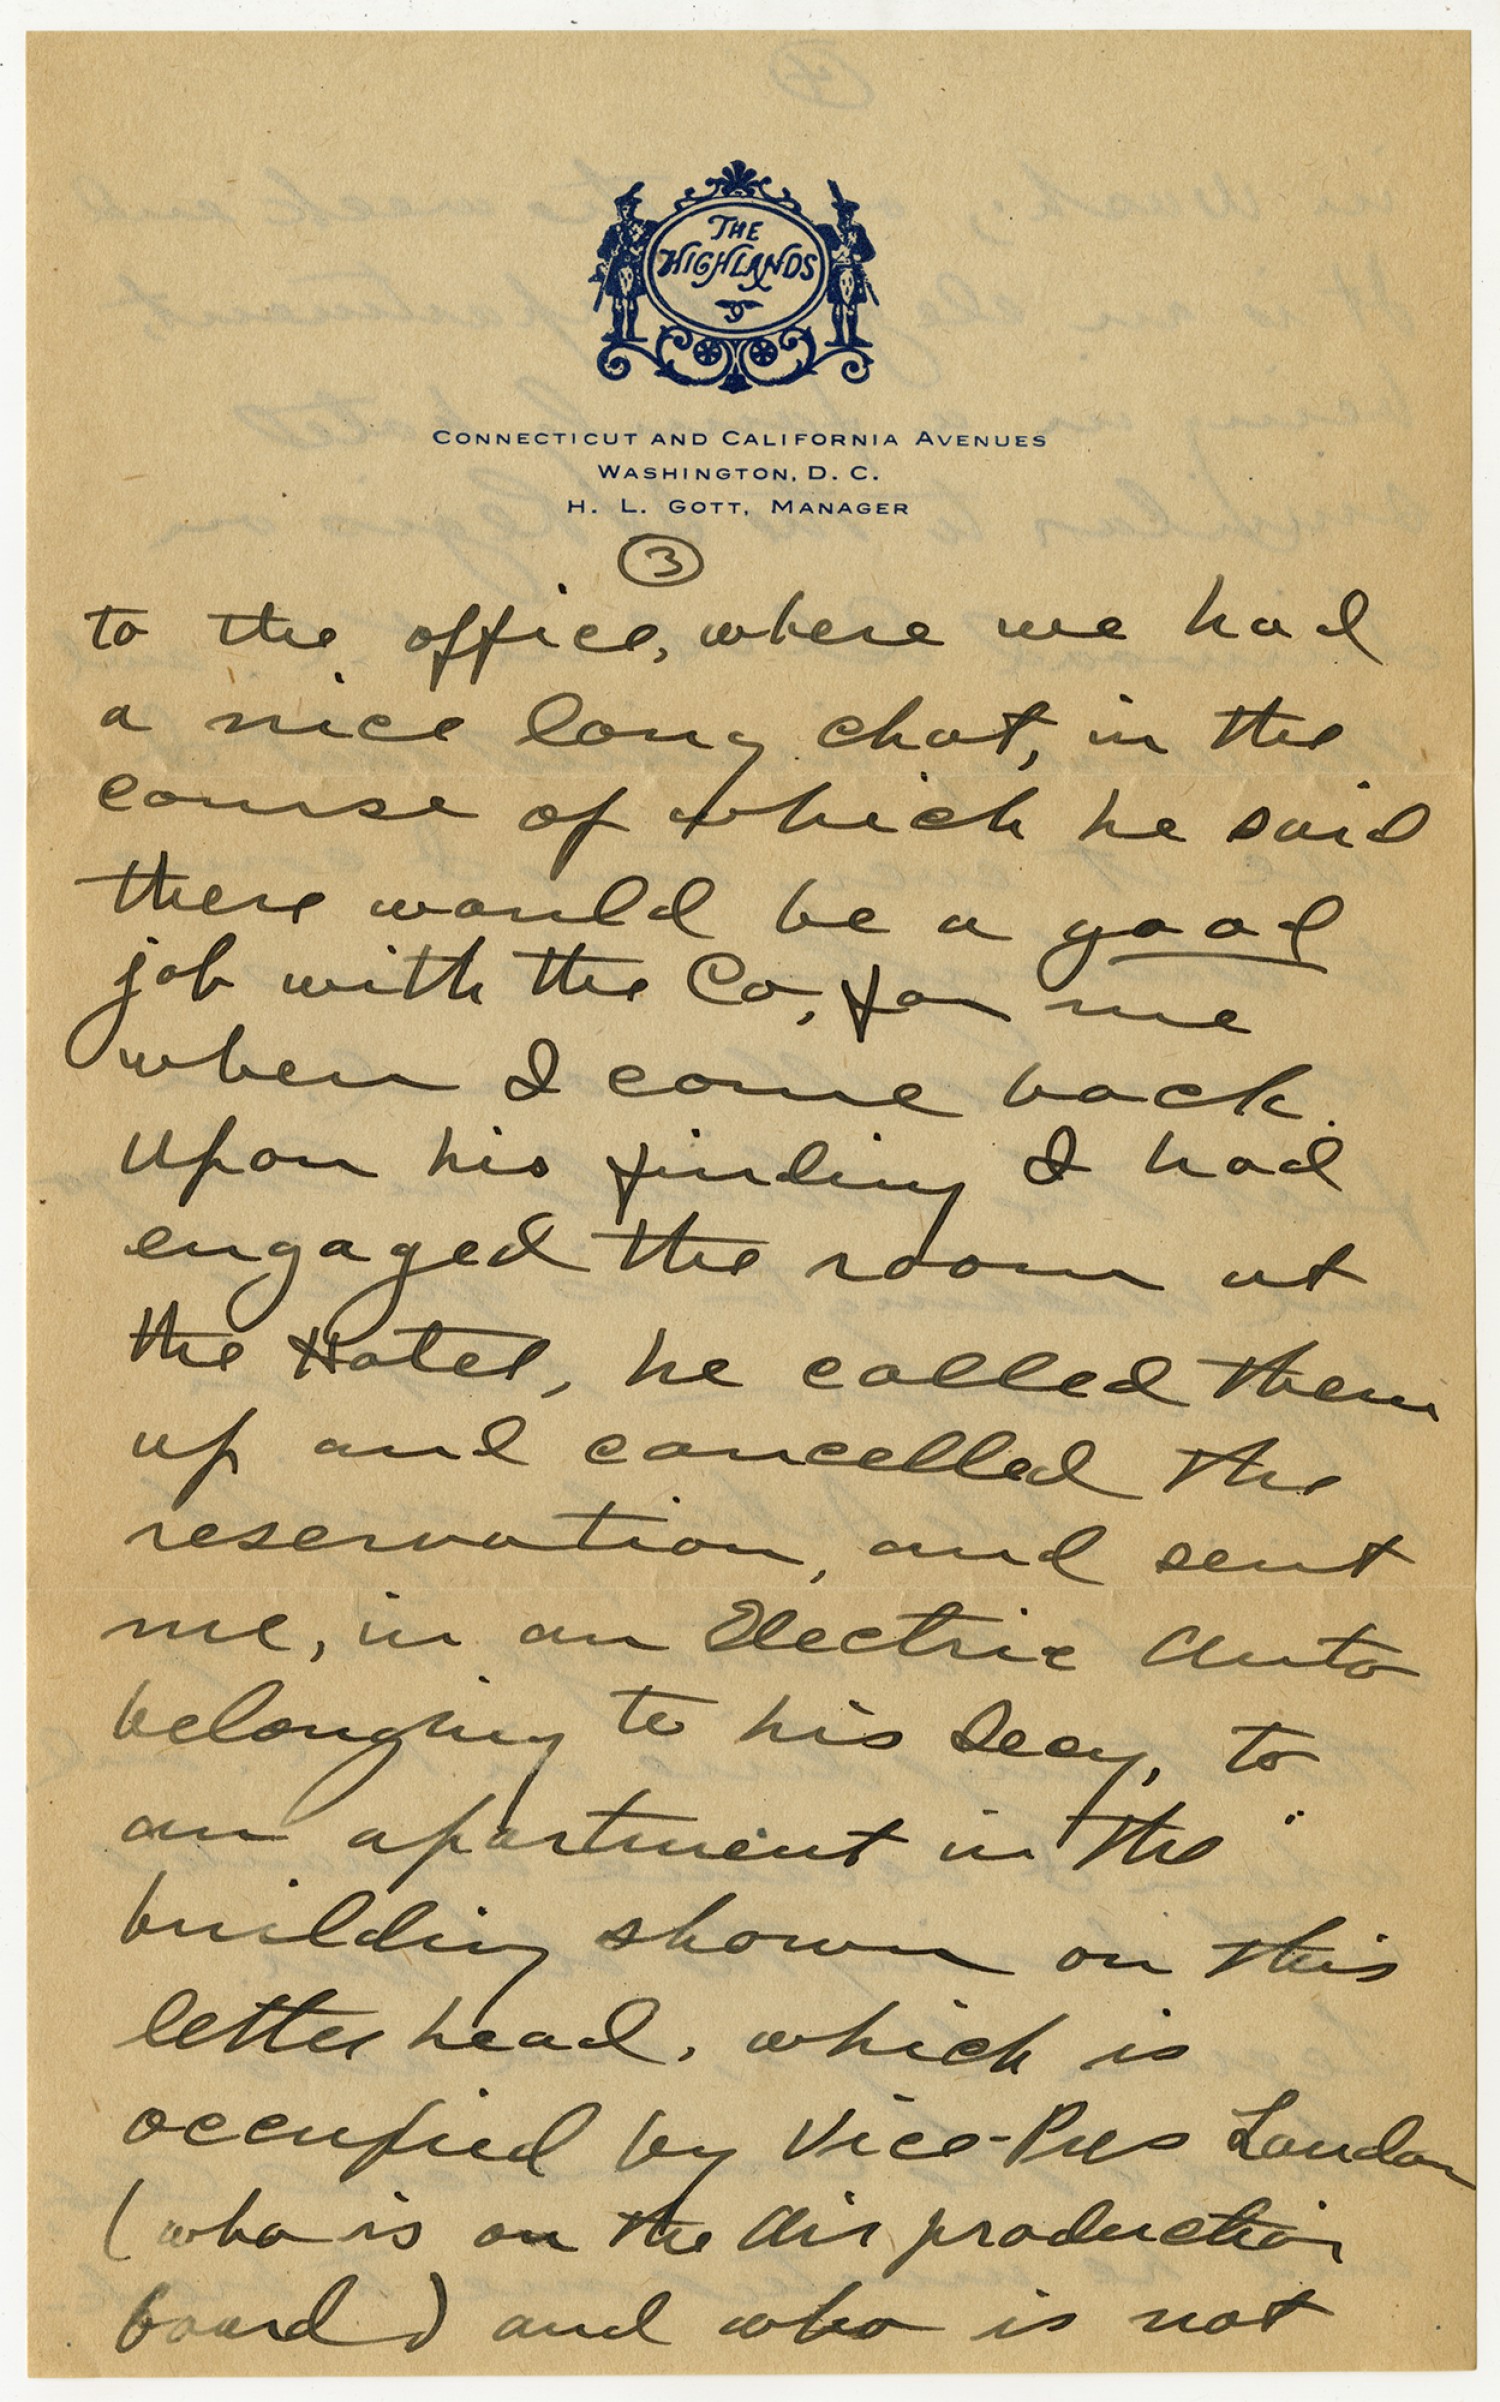 THE
HIGHLANDS
CONNECTICUT AND CALIFORNIA AVENUES
WASHINGTON, D. C.
H. L. GOTT, MANAGER
3
to the office, where we had
a nice long chat, in the
course of which he said
there would be a good
job with the Co, for me
when I come back.
Upon his finding I had
engaged the room at
the Hotel, he called them
up and cancelled the
reservation, and sent
me, in an Electric Auto
belonging to his Secy, to
an apartment in the
building shown on this
letter head, which is
occupied by Vice-Pres Landon
(who is on the Air production
board) and who is not